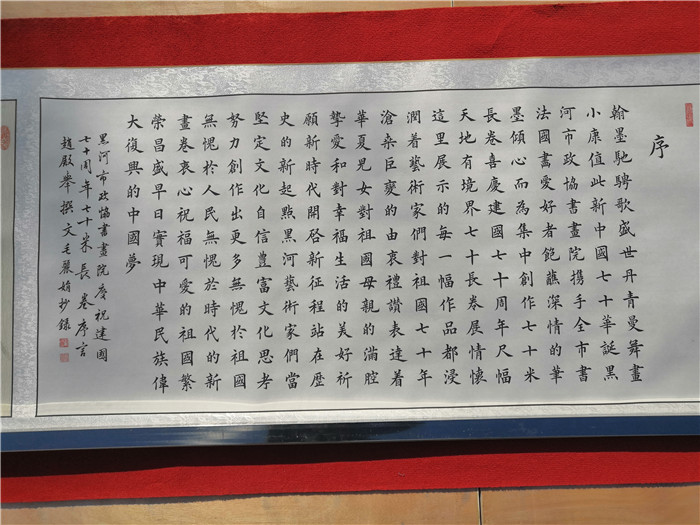 序
翰墨馳騁歌盛世丹青曼舞畫
小康值此新中國七十華誕黑
河市政協書畫院携手全市書
法國畫愛好者飽蘸深情的華
墨傾心而為集中創作七十米
長卷喜慶建國七十周年尺幅
天地有境界七十長卷展情懷
這里展示的每一幅作品都浸
潤着藝術家們對祖國七十年
滄桑巨變的由衷禮讚表達着
華夏兒女對祖國母親的滿腔
摯愛和對幸福生活的美好祈
願新時代開啓新征程站在歷
史的新起點黑河藝術家們當
堅定文化自信豐富文化思考
努力創作出更多無愧於祖國
無愧於人民無愧於時代的新
畫卷衷心祝福可愛的祖國繁
榮昌盛早日實現中華民族偉
大復興的中國夢
黑河市政協書畫院慶祝建國
七十周年七十米長卷序言
趙殿舉撰文毛麗娟抄錄